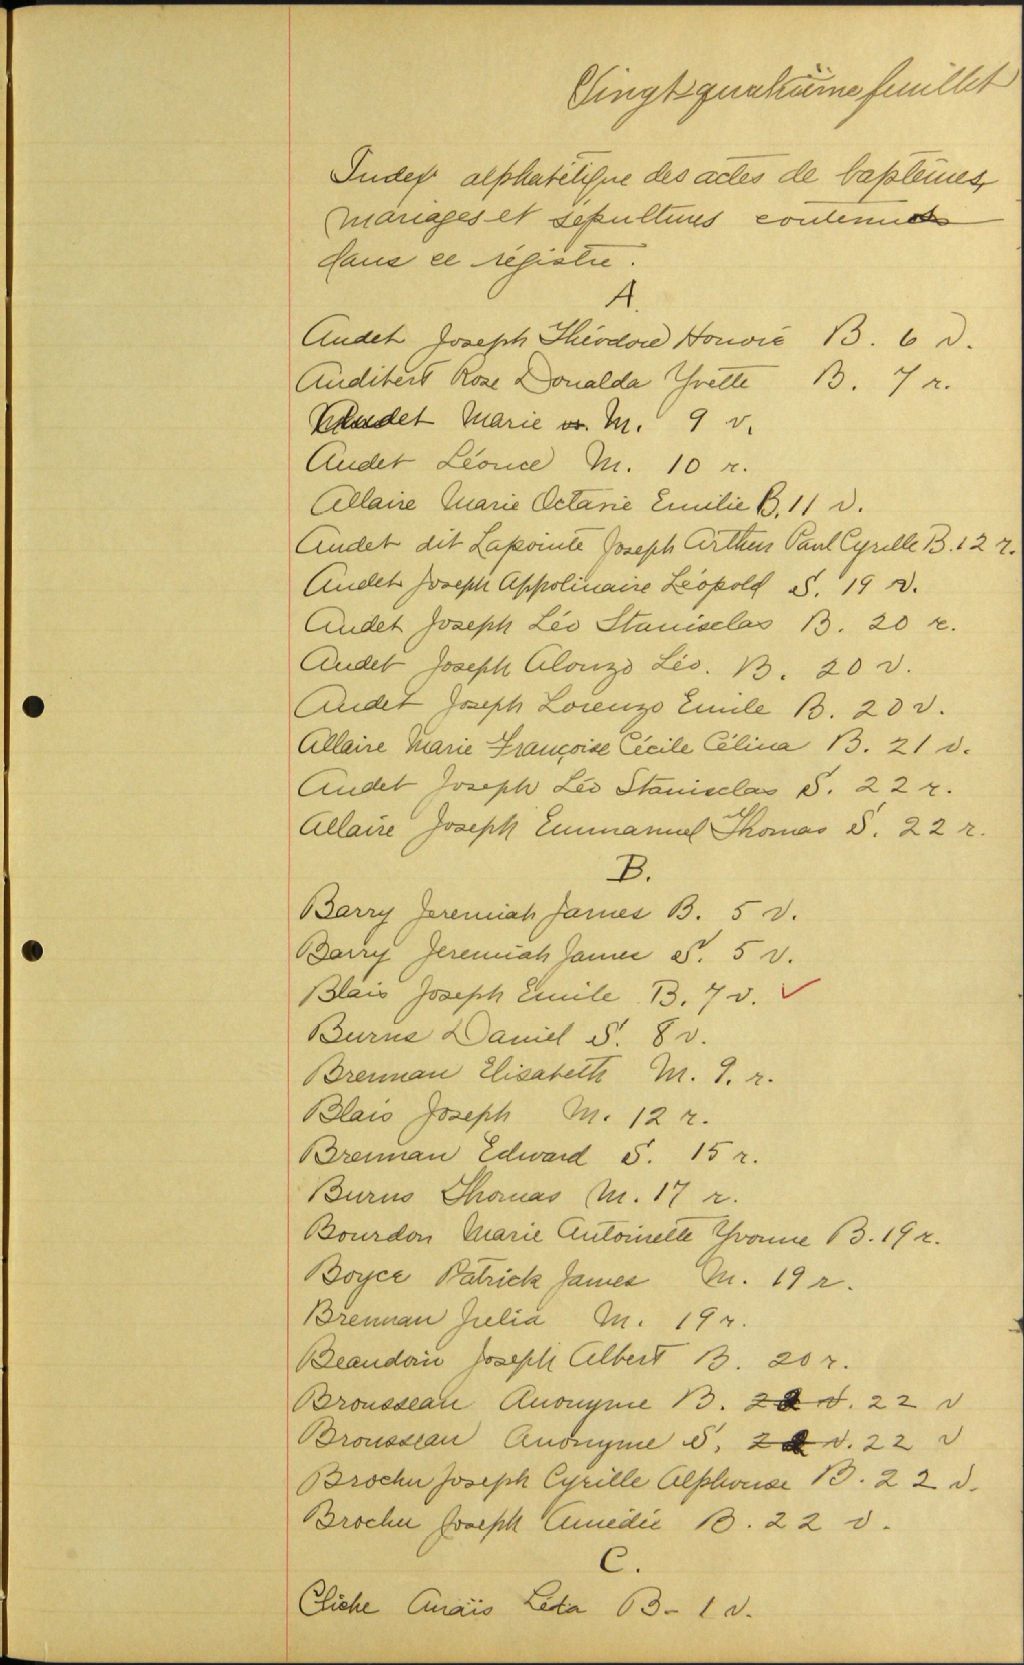 Vingt-quatrième feuillet
Index alphabétique des actes de baptêmes,
mariages et sépultures contenus
dans ce régistre.
A.
Audet Joseph Théodore Honoré B. 6 v.
Audibert Rose Donalda Yvette B. 7 r.
Audet Marie M. 9 v.
Audet Léonce M. 10 r.
Allaire Marie Octavie Emilie B. 11 v.
Audet dit Lapointe Joseph Arthur Paul Cyrille B. 12 r.
Audet Joseph Appolinaire Léopold S. 19 v.
Audet Joseph Léo Stanisclas B. 20 r.
Audet Joseph Alonzo Léo. B. 20 v.
Audet Joseph Lorenzo Emile B. 20 v.
Allaire Marie Françoise Cécile Célina B. 21 v.
Audet Joseph Léo Stanisclas S. 22 r.
Allaire Joseph Emmanuel Thomas S. 22 r.
B.
Barry Jeremiah James B. 5 v.
Barry Jeremiah James S. 5 v.
Blais Joseph Emile B. 7 v. ✓
Burns Daniel S. 8 v.
Brennan Elisabeth M. 9. r.
Blais Joseph M. 12 r.
Brennan Edward S. 15 r.
Burns Thomas M. 17 r.
Bourdon Marie Antoinette Yvonne B. 19 r.
Boyce Patrick James M. 19 r.
Brennan Julia M. 19 r.
Beaudoin Joseph Albert B. 20 r.
Brousseau Anonyme B. 22 v
Brousseau Anonyme S. 22 v
Brochu Joseph Cyrille Alphonse B. 22 v.
Brochu Joseph Amédée B. 22 v.
C.
Cliche Anaïs Léda B - 1 v.